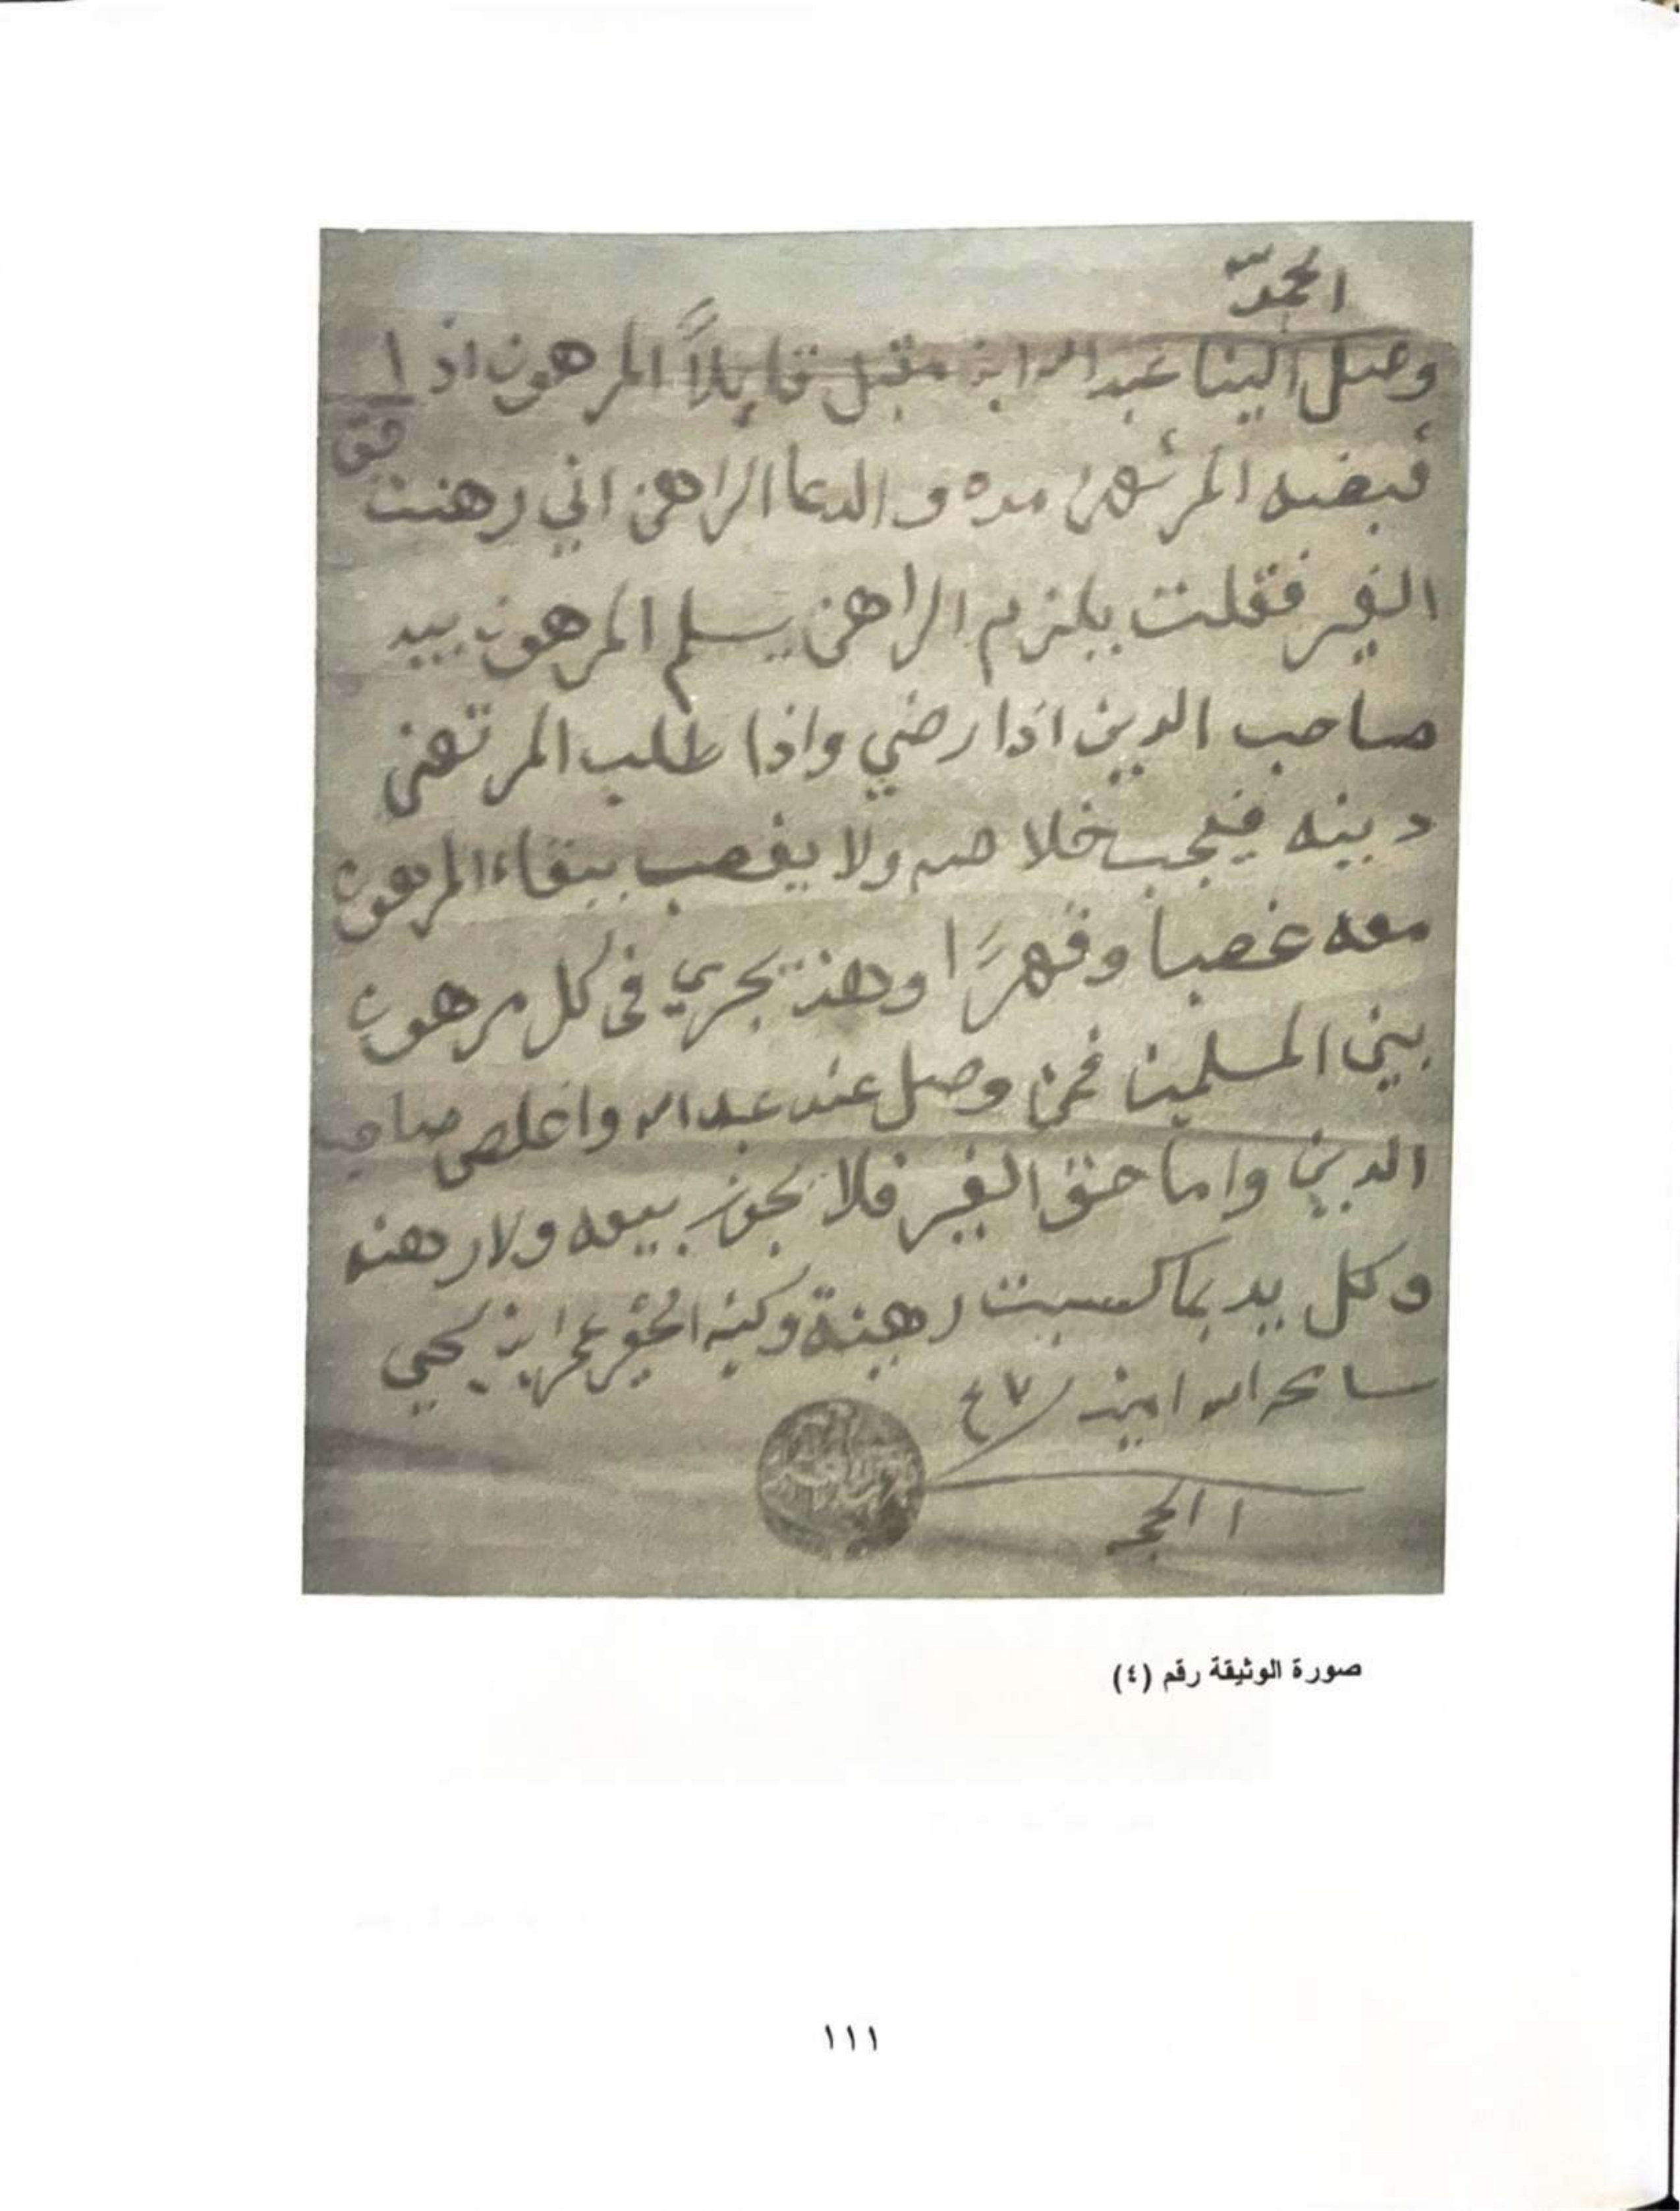 الحمد لله
وصل الينا عبدالله ابن مقبل قايلاً المرهون اذا
قبضه المرتهن مده و الدعا الراهن اني رهنت حق
الغير فقلت يلزم الراهن يسلم المرهون بيد
صاحب الدين اذا رضي واذا طلب المرتهن
دينه فيجب خلاصه ولا يغصب ببقاء المرهون
معه غصبا وقهرًا وهذ تجري في كل مرهون
بين المسلمين فمن وصل عند عبدالله واخلص صاحب
الدين واما حق الغير فلا يجوز بيعه ولا رهنه
وكل يد بما كسبت رهينة وكتبه الحقير عمر ابن يحي
سامحه الله امين
صورة الوثيقة رقم (٤)
١١١